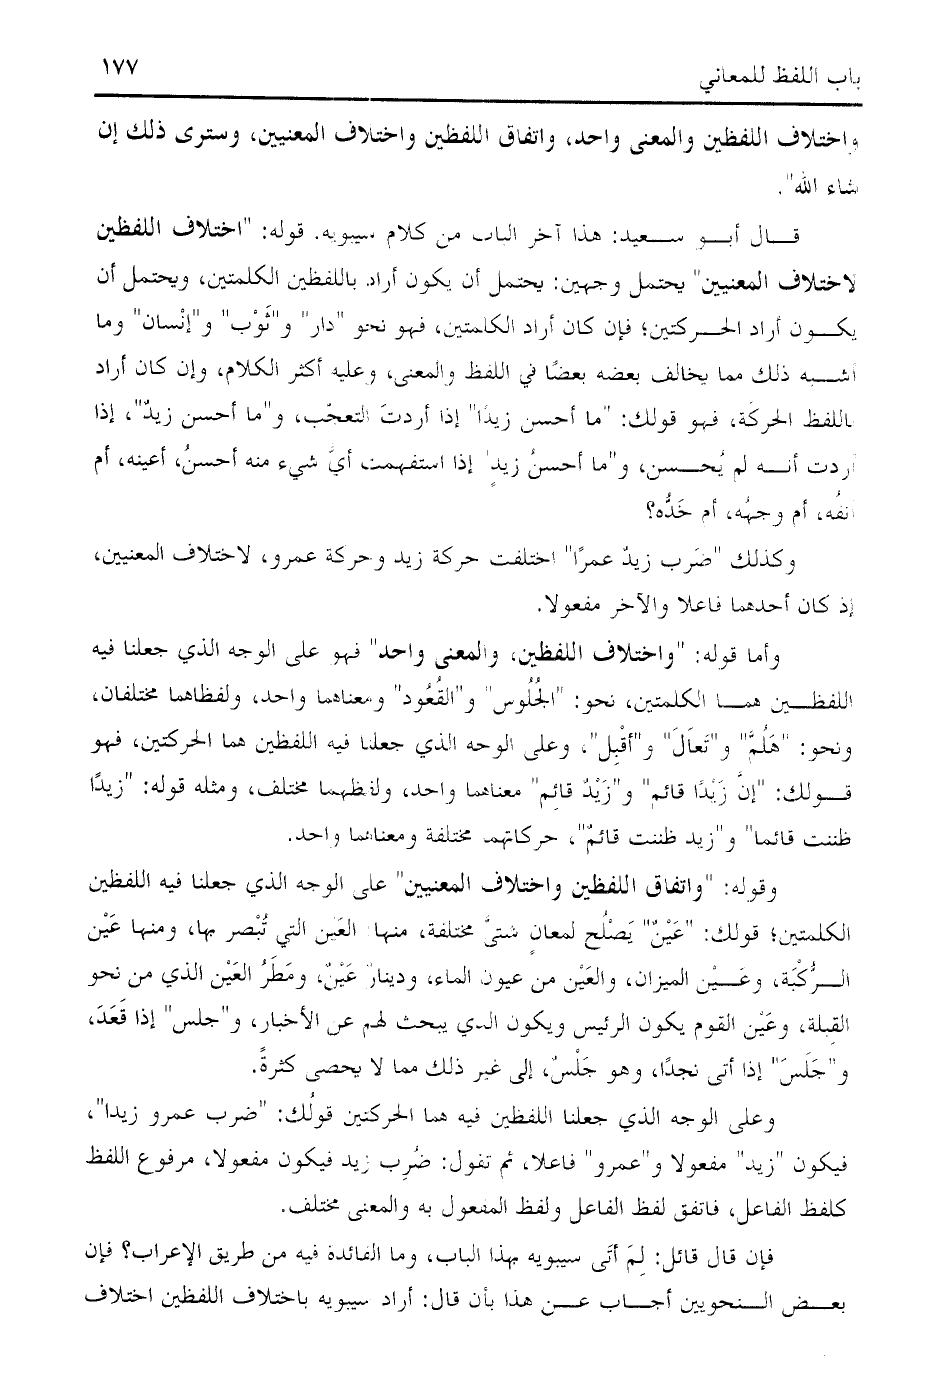 باب اللفظ للمعاني ١٧٧
واختلاف اللفظين والمعنى واحد، واتفاق اللفظين واختلاف المعنيين، وسترى ذلك إن
شاء الله".
قال أبو سعيد: هذا آخر الباب من كلام سيبويه. قوله: "اختلاف اللفظين
لاختلاف المعنيين" يحتمل وجهين: يحتمل أن يكون أراد باللفظين الكلمتين، ويحتمل أن
يكون أراد الحركتين؛ فإن كان أراد الكلمتين، فهو نحو "دار" و"ثَوْب" و"إنْسان" وما
أشبه ذلك مما يخالف بعضه بعضًا في اللفظ والمعنى، وعليه أكثر الكلام، وإن كان أراد
باللفظ الحركة، فهو قولك: "ما أحسن زيدًا" إذا أردتَ التعجّب، و"ما أحسن زيدٌ"، إذا
أردت أنه لم يُحسن، و"ما أحسنُ زيدٍ" إذا استفهمت أيُّ شيء منه أحسنُ، أعينه، أم
أنفُه، أم وجهُه، أم خَدُّه؟
وكذلك "ضَرب زيدٌ عمرًا" اختلفت حركة زيد وحركة عمرو، لاختلاف المعنيين،
إذ كان أحدهما فاعلا والآخر مفعولا.
وأما قوله: "واختلاف اللفظين، والمعنى واحد" فهو على الوجه الذي جعلنا فيه
اللفظين هما الكلمتين، نحو: "الجُلُوس" و"القُعُود" ومعناهما واحد، ولفظاهما مختلفان،
ونحو: "هَلُمَّ" و"تَعاَلَ" و"أقْبِل"، وعلى الوجه الذي جعلنا فيه اللفظين هما الحركتين، فهو
قولك: "إنَّ زَيْدًا قائم" و"زَيْدٌ قائم" معناهما واحد، ولفظهما مختلف، ومثله قوله: "زيدًا
ظننت قائما" و"زيد ظننت قائمٌ"، حركاتهما مختلفة ومعناهما واحد.
وقوله: "واتفاق اللفظين واختلاف المعنيين" على الوجه الذي جعلنا فيه اللفظين
الكلمتين؛ قولك: "عَيْنٌ" يَصْلُح لمعان شتىَّ مختلفة، منها: العَين التي تُبْصر بها، ومنها عَيْن
الرُّكْبَة، وعَيْن الميزان، والعَيْن من عيون الماء، ودينارٌ عَيْنٌ، ومَطَرُ العَيْن الذي من نحو
القبلة، وعَيْن القوم يكون الرئيس ويكون الذي يبحث لهم عن الأخبار، و"جلس" إذا قَعَدَ،
و"جَلَسَ" إذا أتى نجدًا، وهو جَلْسٌ، إلى غير ذلك مما لا يحصى كثرةً.
وعلى الوجه الذي جعلنا اللفظين فيه هما الحركتين قولُك: "ضرب عمرو زيدا"،
فيكون "زيد" مفعولا و"عمرو" فاعلا، ثم تقول: ضُرِب زيد فيكون مفعولا، مرفوع اللفظ
كلفظ الفاعل، فاتفق لفظ الفاعل ولفظ المفعول به والمعنى مختلف.
فإن قال قائل: لِمَ أتَى سيبويه بهذا الباب، وما الفائدة فيه من طريق الإعراب؟ فإن
بعض النحويين أجاب عن هذا بأن قال: أراد سيبويه باختلاف اللفظين اختلاف